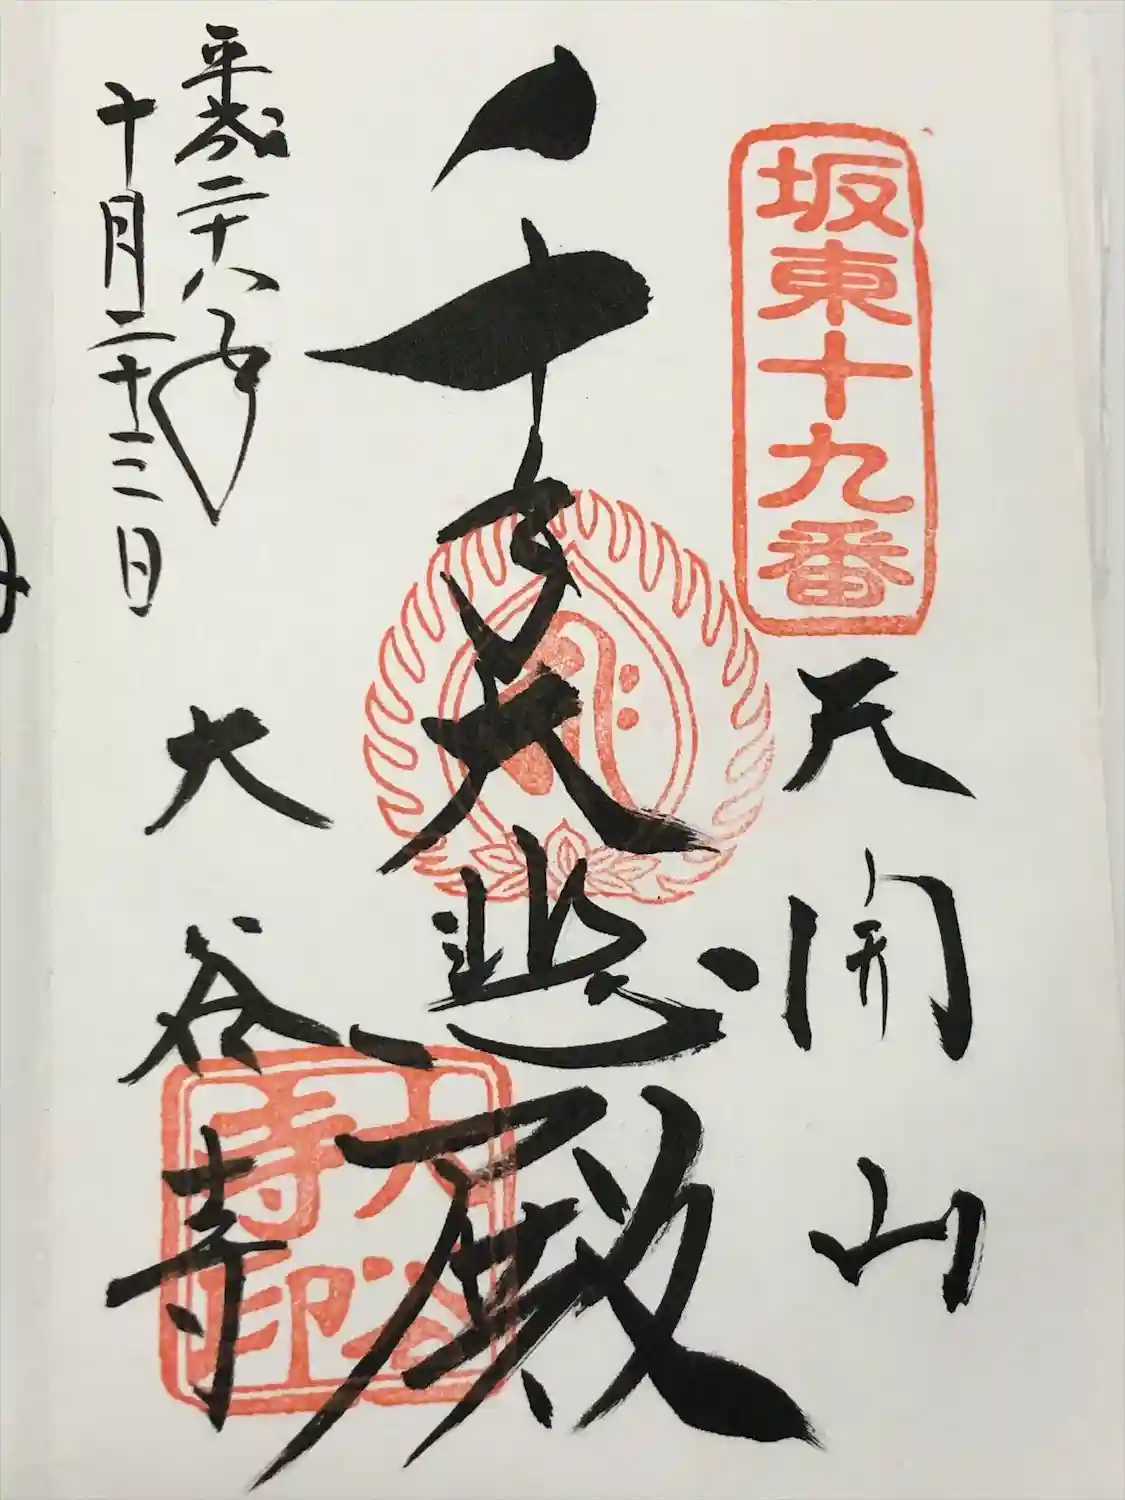 坂東十九番
天開山
千手大悲殿
平成二十八年
十月二十三日
大谷寺
大谷寺印